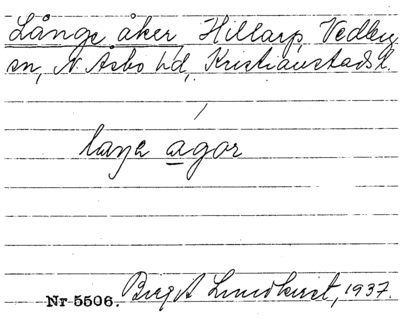 Långe åker Hillarp, Vedby
sn, N. Åsbo hd, Kristianstads l.
agor
Nr 5506. Birgit Lundkvist, 1937.